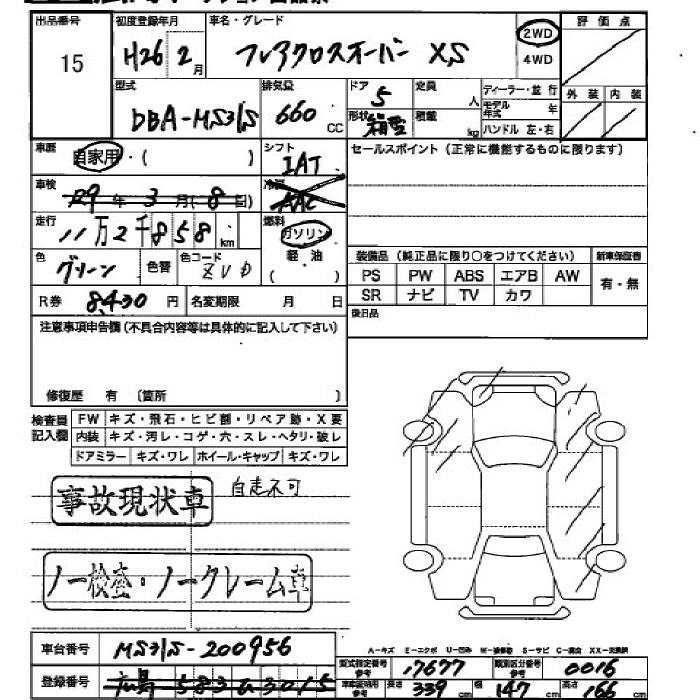 出品番号 初度登録年月 車名・グレード 評価点
15 H26 2月 フレアクロスオーバー XS 2WD 4WD
型式 排気量 ドア 定員 ディーラー・並行 外装 内装
DBA-MS31S 660 CC 5 人 モデル年式 年
形状 箱型 積載 kg ハンドル 左・右
車歴 自家用・( ) シフト IAT セールスポイント(正常に機能するものに限ります)
車検 29年3月(8日) 冷房 AAC
走行 11万2千858km 燃料 ガソリン
色 グリーン 色替 色コード ZVD 軽油 ( ) 装備品(純正品に限り○をつけてください) 新車保証書
PS PW ABS エアB AW 有・無
R券 8,430円 名変期限 月 日 SR ナビ TV カワ
後日品
注意事項申告欄(不具合内容等は具体的に記入して下さい)
修復歴 有 〔箇所 〕
検査員記入欄 FW キズ・飛石・ヒビ割・リペア跡・X要
内装 キズ・汚レ・コゲ・穴・スレ・ヘタリ・破レ
ドアミラー キズ・ワレ ホイール・キャップ キズ・ワレ
事故現状車 自走不可
ノー検査・ノークレーム車
車台番号 MS31S-200956 A-キズ E-エクボ U-凹み W-補修跡 S-サビ C-腐食 XX-交換済
型式指定番号 17677 類別区分番号 0016
登録番号 広島 583 3015 長さ 339 cm 幅 147 cm 高さ 166 cm